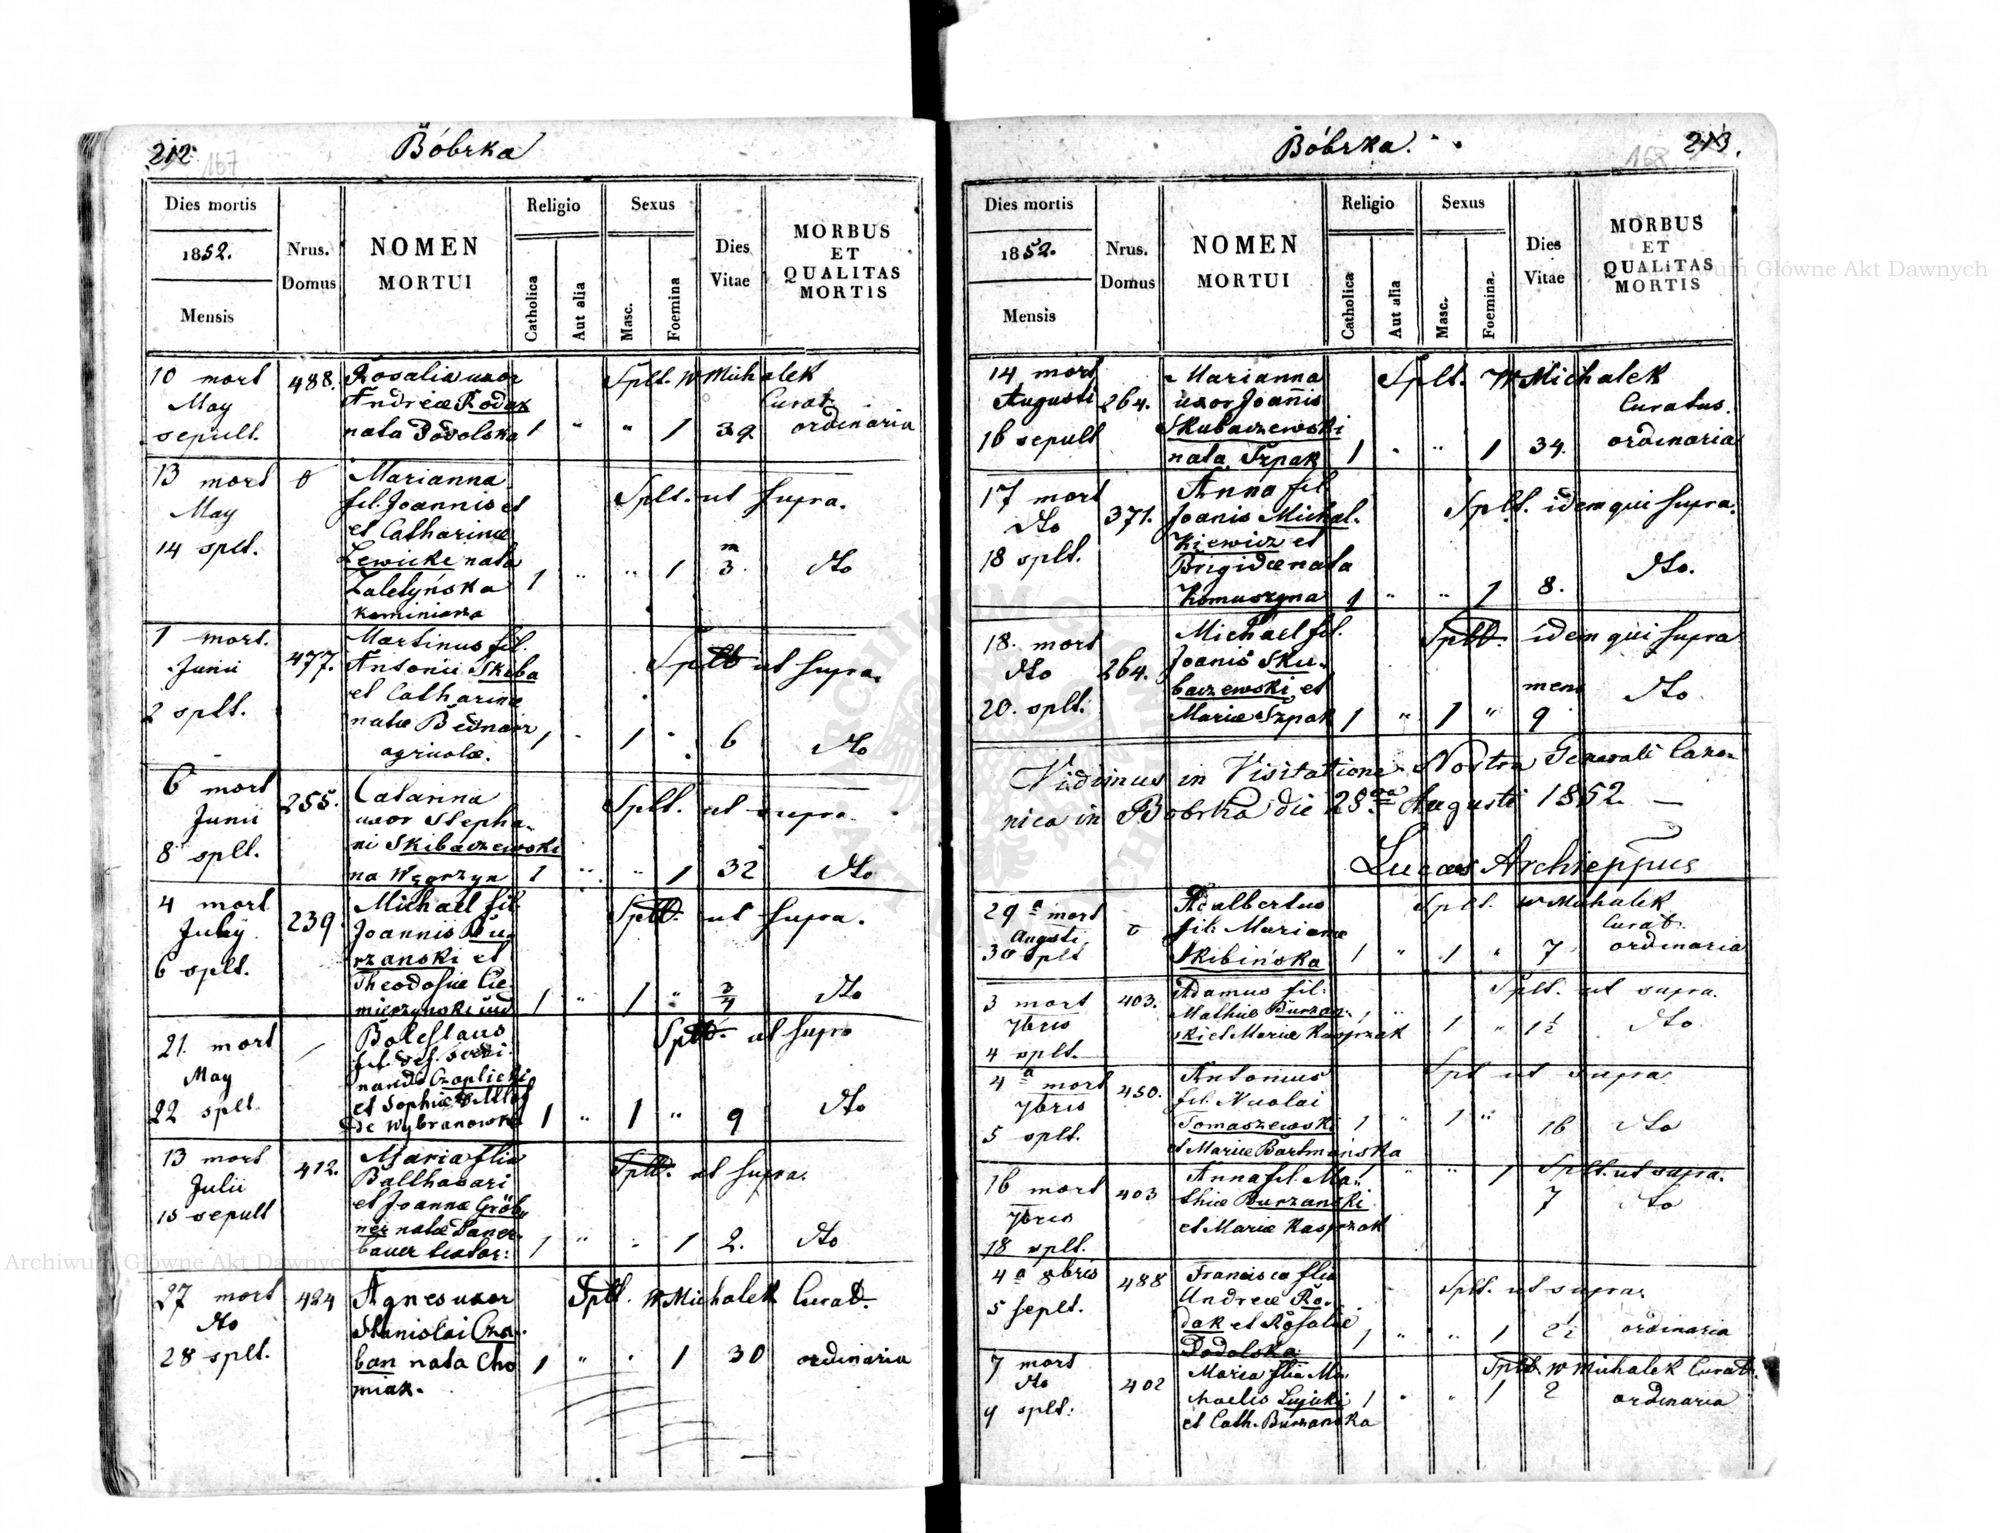 212.
167
Bóbrka
Dies mortis
1852.
Mensis
Nrus.
Domus
NOMEN
MORTUI
Religio
Catholica
Aut alia
Sexus
Masc.
Foemina
Dies
Vitae
MORBUS
ET
QUALITAS
MORTIS
10 mort
May
sepult.
488.
Rosalia uxor
Andreæ Rodak
nata Podolska
Splt. W Michalek
Curat.
1 " " 1 39 ordinaria
13 mort
May
14 splt.
0
Marianna
fil. Joannis et
et Catharinæ
Lewicke nata
Zaletyńska
kominiarza
Splt. ut supra.
1 " " 1 m 3 dto
1 mort.
Junii
2 splt.
477.
Martinus fil.
Antonii Skiba
et Catharinæ
natæ Bednarz
agricolæ.
Splt ut supra.
1 " 1 " 6 dto
6 mort
Junii
8 splt.
255.
Catarina
uxor Stepha-
ni Skibaczewski
na Węgrzyn
Splt. ut supra
1 " " 1 32 dto
4 mort
July
6 splt.
239
Michael fil.
Joannis Bu-
rzanski et
Theodosiæ Cie-
Splt. ut supra.
1 " 1 " 3/4 dto
21 mort
May
22 splt.
Boleslaus
nandi Czaplicki
et Sophiæ
de Wybranowski
Splt. ut supra
1 " 1 " 9 dto
13 mort
Julii
15 sepult
412.
Maria filia
Balthasari
et Joannæ Gröb-
ner natæ
bauer
Splt. ut supra.
1 " " 1 2. dto
27 mort
dto
28 splt.
424
Agnes uxor
Stanislai Cza-
ban nata Cho
miak.
Splt. W Michalek Curat.
1 " " 1 30 ordinaria
Bóbrka.
168
213.
Dies mortis
1852.
Mensis
Nrus.
Domus
NOMEN
MORTUI
Religio
Catholica
Aut alia
Sexus
Masc.
Foemina.
Dies
Vitae
MORBUS
ET
QUALITAS
MORTIS
14 mort
Augusti
16 sepult
264.
Marianna
uxor Joanis
Skubaczewski
nata Szpak
Splt. W Michalek
Curatus.
1 " " 1 34. ordinaria
17 mort
dto
18 splt.
371.
Anna fil.
Joanis Michal-
kiewicz et
Brigidæ nata
Komuszyna
Splt. idem qui supra.
1 " " 1 8. dto.
18. mort
dto
20. splt.
264.
Michael fil.
Joanis Sku-
baczewski et
Mariæ Szpak
Splt. idem qui supra
1 " 1 " mens 9 dto
Vidimus in Visitatione Nostra Generali Cano-
nica in Bobrka die 28va Augusti 1852. —
Lucas Archieppus
29a mort
Augusti
30 splt
0
Adalbertus
fil: Marianæ
Skibińska
Splt. W Michalek
Curat.
1 " 1 " 7 ordinaria
3 mort
7bris
4 splt.
403.
Adamus fil:
Mathiæ Burzan-
ski et Mariæ Kasprzak
Splt. ut supra.
1 " 1 " 1 1/2 dto
4a mort
7bris
5 splt.
450.
Antonius
fil. Nicolai
Tomaszewski
et Mariæ Bartmańska
Splt ut supra
1 " 1 " 16 dto
16 mort
7bris
18 splt.
403
Anna fil. Ma-
thiæ Burzanski
et Mariæ Kasprzak
Splt. ut supra.
1 " " 1 7 dto
4a 8bris
5 seplt.
488
Francisca filia
Andreæ Ro-
dak et Rosaliæ
Podolska
Splt. ut supra.
1 " " 1 2 1/2 ordinaria
7 mort
dto
9 splt.
402
Maria filia Mi-
chaelis
et Cath. Burzanska
Splt W Michalek Curat.
1 " " 1 2 ordinaria
Archiwum Główne Akt Dawnych
Archiwum Główne Akt Dawnych